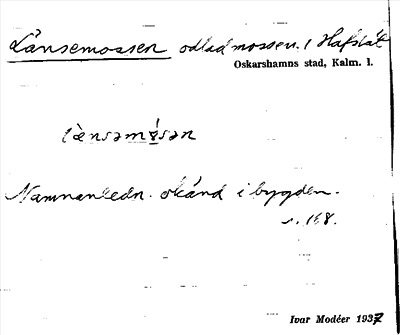 Länsemossen odlad mossen. i Hafslät
Oskarshamns stad, Kalm. l.
lænsəmɷ́sən
Namnanledn. okänd i bygden.
s. 168.
Ivar Modéer 1937